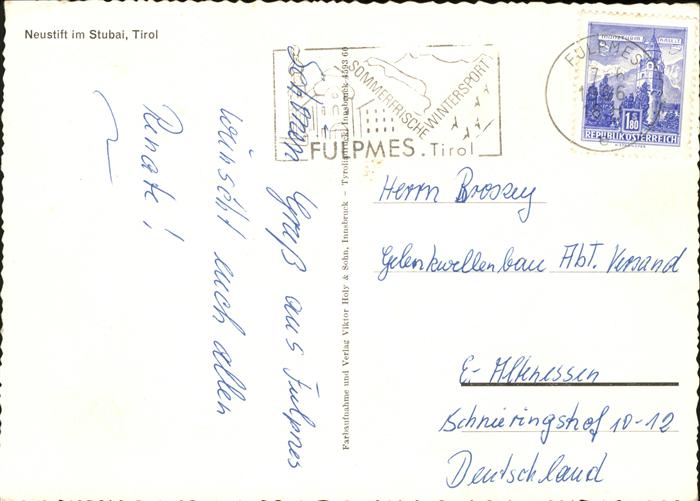 Neustift im Stubai, Tirol
Schönen Gruß aus Fulpmes
wünscht euch allen
Renate!
Farbaufnahme und Verlag Viktor Holy & Sohn, Innsbruck - Tyroliadruck, Innsbruck 4593 60
SOMMERFRISCHE WINTERSPORT
FULPMES. Tirol
FULPMES
1.80
REPUBLIK ÖSTERREICH
Herrn Brossey
Gelenkwellenbau Abt. Versand
E-Altenessen
Schnieringshof 10-12
Deutschland